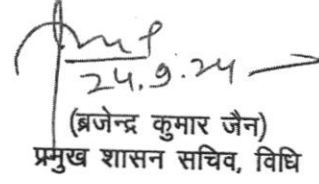 24.9.24
(ब्रजेन्द्र कुमार जैन)
प्रमुख शासन सचिव, विधि